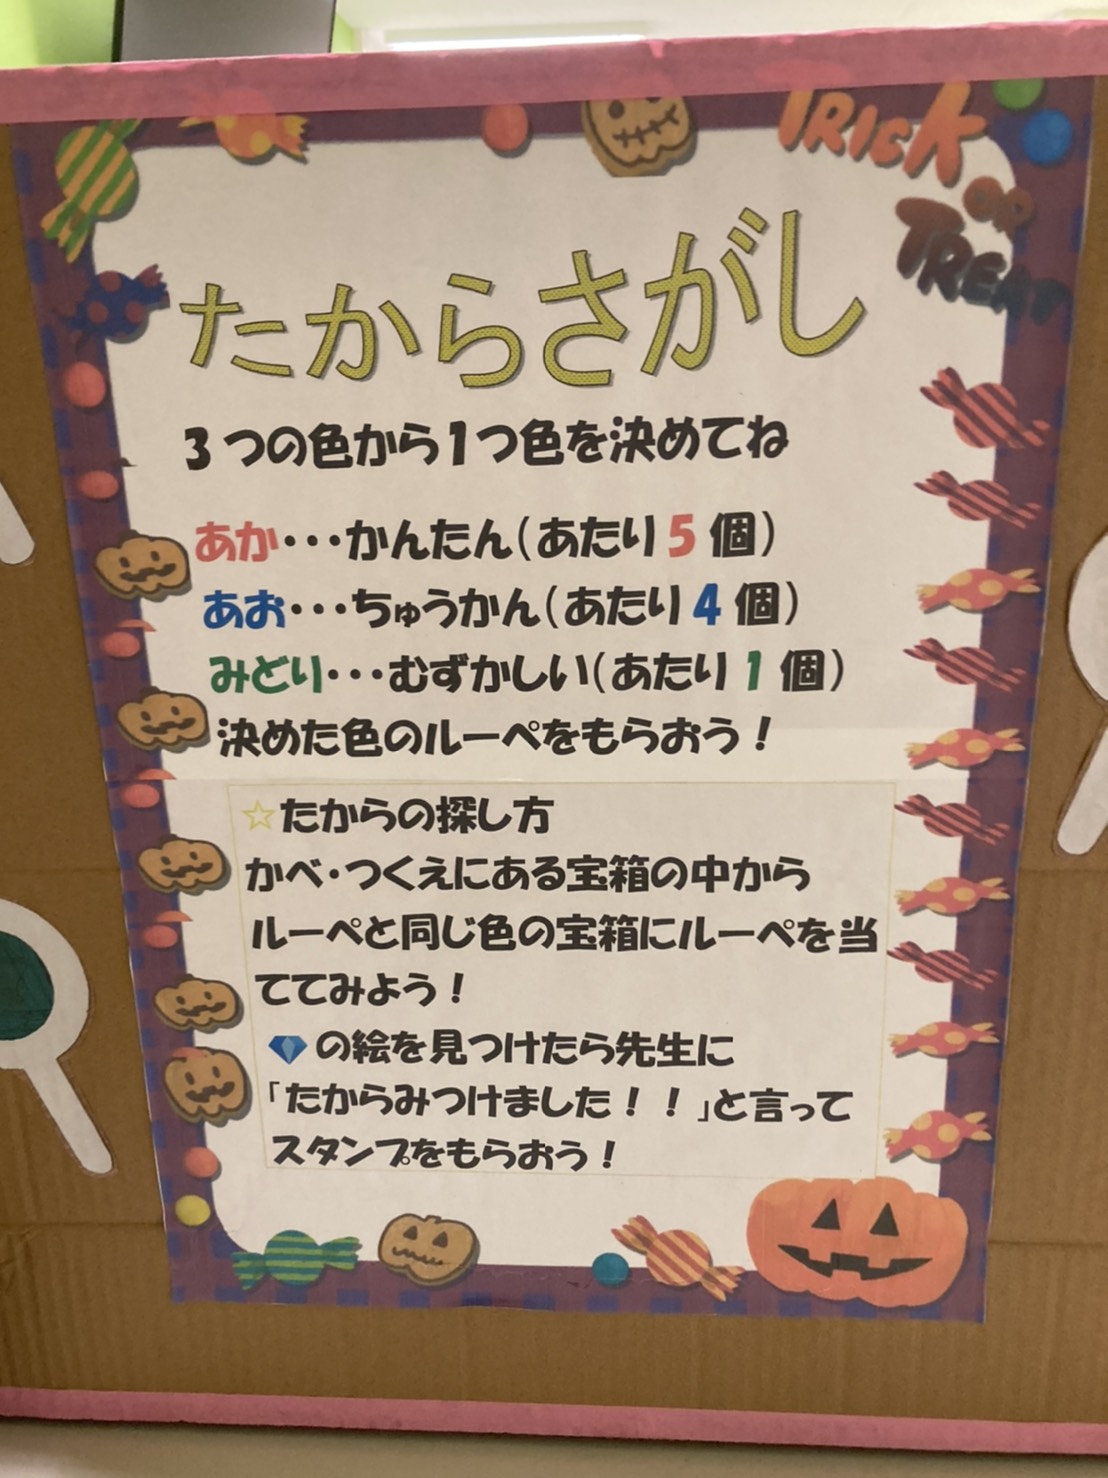 TRICK
OR
TREAT
たからさがし
3つの色から1つ色を決めてね
あか・・・かんたん(あたり5個)
あお・・・ちゅうかん(あたり4個)
みどり・・・むずかしい(あたり1個)
決めた色のルーペをもらおう！
☆たからの探し方
かべ・つくえにある宝箱の中から
ルーペと同じ色の宝箱にルーペを当
ててみよう！
の絵を見つけたら先生に
「たからみつけました！！」と言って
スタンプをもらおう！